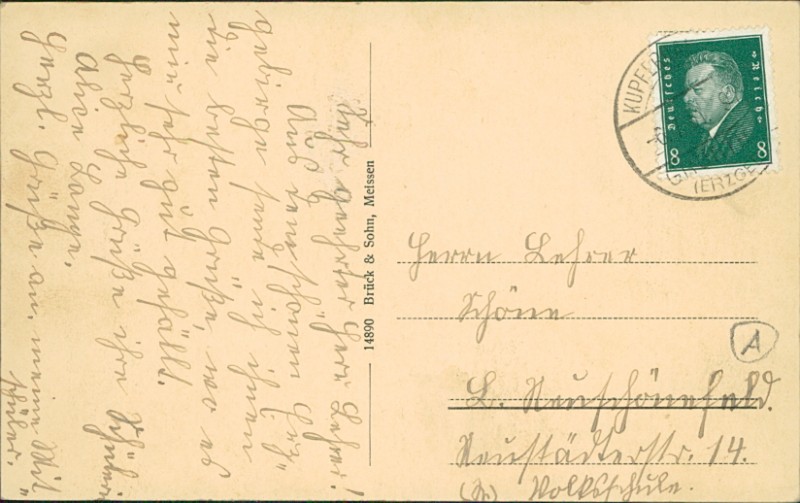 Sehr geehrter Herr Lehrer!
Aus dem schönen Erz-
gebirge sende ich ihnen
die besten Grüße, wo es
mir sehr gut gefällt.
Herzliche Grüße ihre Schülerin
Alice Lange.
Herzl. Grüße an meine Mit-
schüler.
14890 Brück & Sohn, Meissen
KUPFER
(ERZGEB
Deutsches Reich
8 8
Herrn Lehrer
Schöne
L. Neuschönefeld.
Neustädterstr. 14.
Volksschule.
A